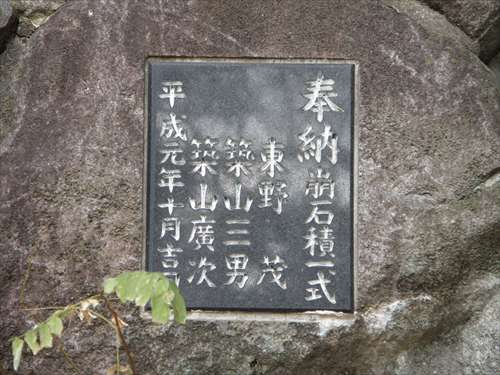 奉納崩石積一式
東野 茂
築山三男
築山廣次
平成元年十月吉日